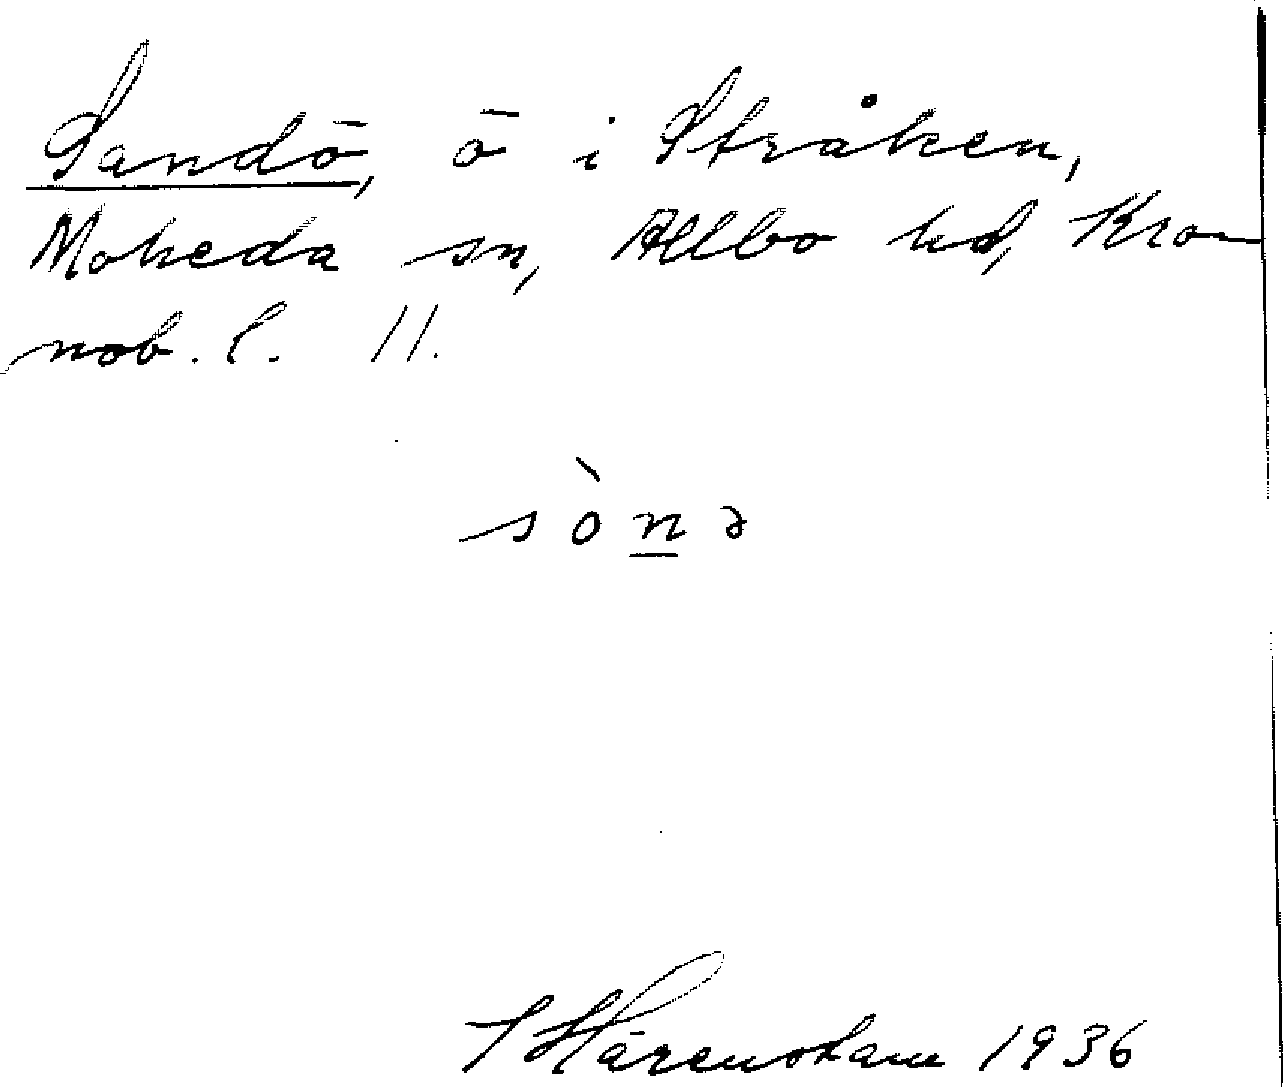 Sandö, ö i Stråken,
Moheda sn, Allbo hd, Kro-
nob. l. 11.
sònə
I Härenstam 1936